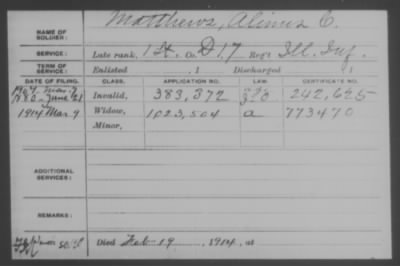 Matthews, C.
NAME OF SOLDIER:
SERVICE: Late rank, Co. D 17 Reg't Ill. Inf.
TERM OF SERVICE: Enlisted , 1 Discharged , 1
DATE OF FILING. CLASS. APPLICATION NO. LAW. CERTIFICATE NO.
1880 June 21 Invalid, 383,372 242,625
1914 Mar. 9 Widow, 1023,504 a 773470
Minor,
ADDITIONAL SERVICES:
REMARKS:
Died Feb 19, 1914, at